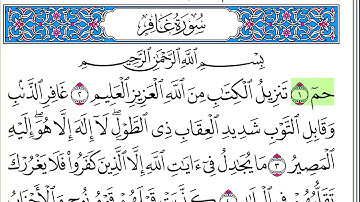 سُورَةُ غَافِرٍ
بِسْمِ اللَّهِ الرَّحْمَٰنِ الرَّحِيمِ
حمٓ ١ تَنزِيلُ الْكِتَابِ مِنَ اللَّهِ الْعَزِيزِ الْعَلِيمِ ٢ غَافِرِ الذَّنۢبِ
وَقَابِلِ التَّوْبِ شَدِيدِ الْعِقَابِ ذِى الطَّوْلِ ۖ لَآ إِلَٰهَ إِلَّا هُوَ ۖ إِلَيْهِ
الْمَصِيرُ ٣ مَا يُجَٰدِلُ فِىٓ ءَايَٰتِ اللَّهِ إِلَّا الَّذِينَ كَفَرُوا۟ فَلَا يَغْرُرْكَ
تَقَلُّبُهُمْ فِى الْبِلَٰدِ ٤ كَذَّبَتْ قَبْلَهُمْ قَوْمُ نُوحٍ وَالْأَحْزَابُ